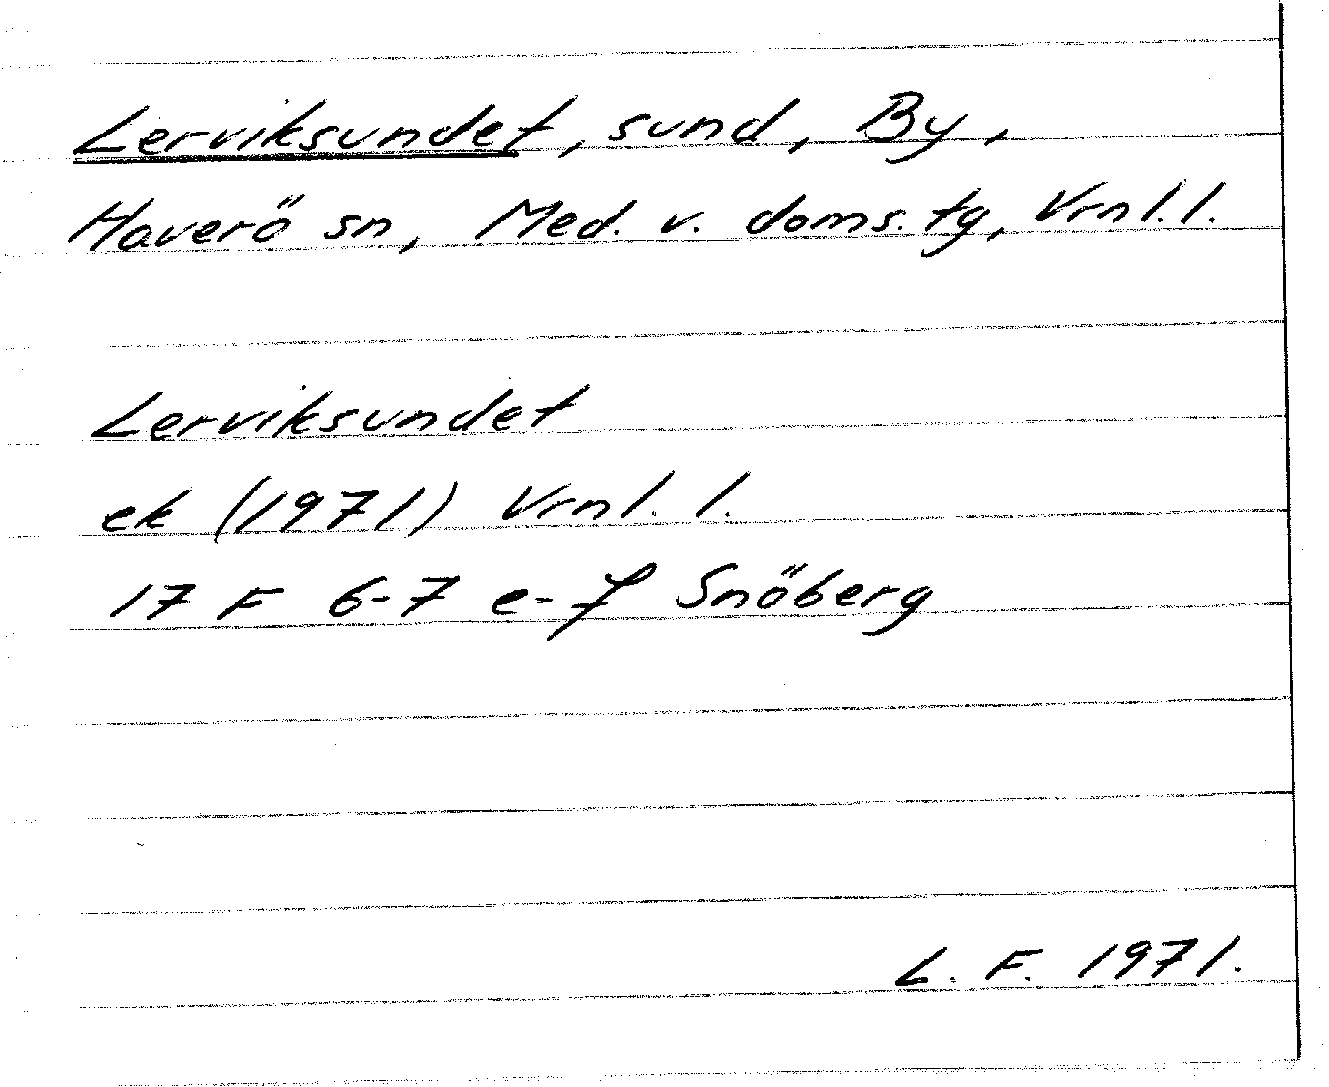 Lerviksundet, sund, By,
Haverö sn, Med. v. doms. tg, Vrnl. l.
Lerviksundet
ek (1971) Vrnl. l.
17 F 6-7 e-f Snöberg
L. F. 1971.